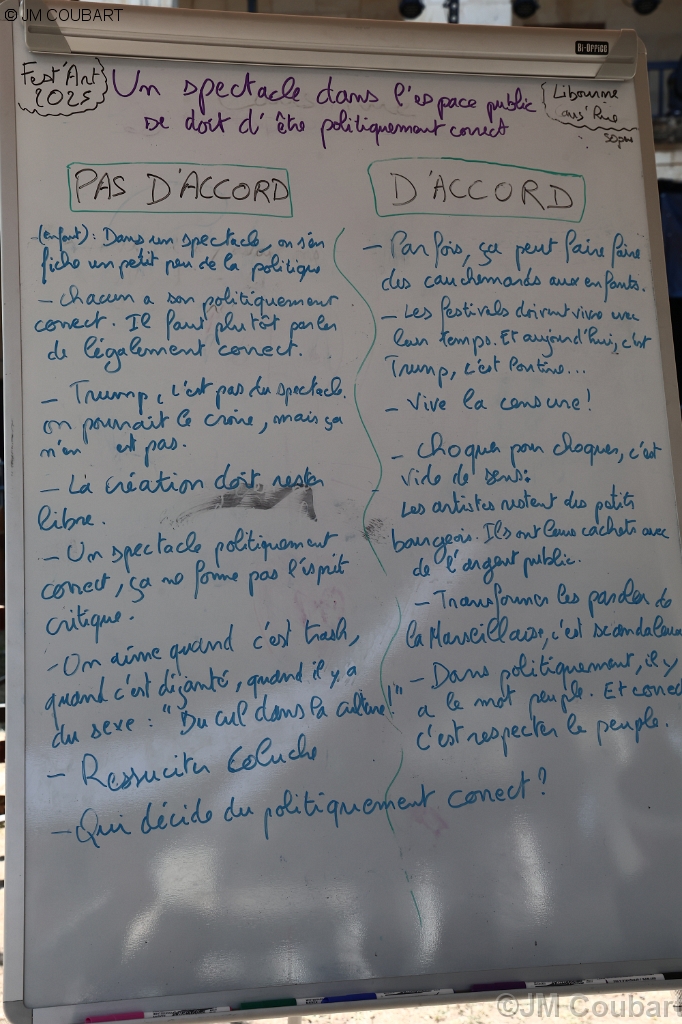 © JM COUBART
Bi-Office
Fest'Art
2025
Un spectacle dans l'espace public
se doit d'être politiquement correct
Libourne
50 pers
PAS D'ACCORD
- (enfant) : Dans un spectacle, on s'en
fiche un petit peu de la politique
- Chacun a son politiquement
correct. Il faut plutôt parler
de légalement correct.
- Trump, c'est pas du spectacle.
on pourrait le croire, mais ça
n'en est pas.
- La création doit rester
libre.
- Un spectacle politiquement
correct, ça ne forme pas l'esprit
critique.
- On aime quand c'est trash,
quand c'est déjanté, quand il y a
du sexe : "Du cul dans la culture!"
- Ressuciter Coluche
- Qui décide du politiquement conect ?
D'ACCORD
- Parfois, ça peut faire faire
des cauchemards aux enfants.
- Les festivals doivent vivre avec
leur temps. Et aujourd'hui, c'est
Trump, c'est Poutine...
- Vive la censure !
- Choquer pour choquer, c'est
vide de sens.
- Les artistes restent des petits
bourgeois. Ils ont leurs cachets avec
de l'argent public.
- Transformer les paroles de
la Marseillaise, c'est scandaleux
- Dans politiquement, il y
a le mot peuple. Et correct
c'est respecter le peuple.
©JM Coubart